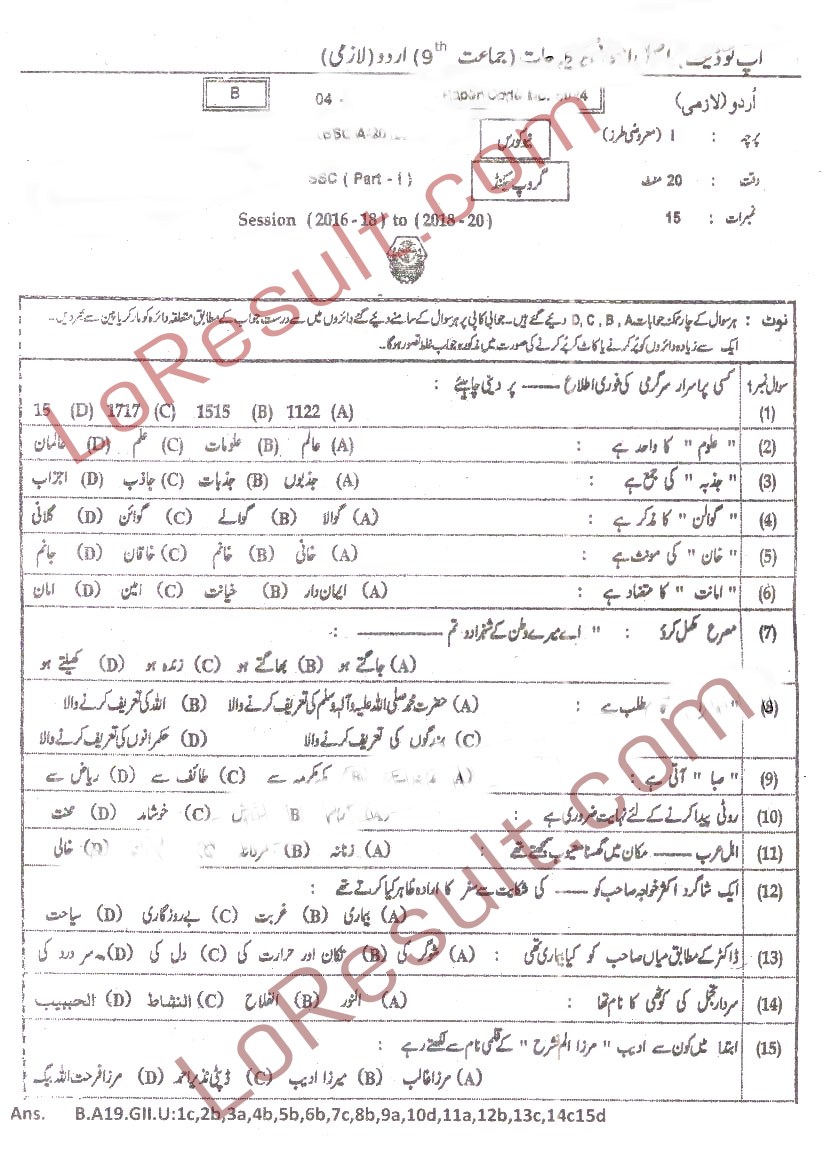 اپ ٹو ڈیٹ (جماعت 9th) اردو (لازمی)
اُردو (لازمی) 04 - B
پرچہ : I (معروضی طرز) نیو کورس
وقت : 20 منٹ گروپ سیکنڈ SSC ( Part - I )
نمبرات : 15 Session (2016 - 18) to (2018 - 20)
نوٹ : ہر سوال کے چار ممکنہ جوابات D, C, B, A دیئے گئے ہیں۔ جوابی کاپی پر ہر سوال کے سامنے دیئے گئے دائروں میں سے درست جواب کے مطابق متعلقہ دائرہ کو مارکر یا پین سے بھر دیں۔
ایک سے زیادہ دائروں کو پُر کرنے یا کاٹ کر پُر کرنے کی صورت میں مذکورہ جواب غلط تصور ہوگا۔
سوال نمبر 1 کسی پراسرار سرگرمی کی فوری اطلاع —— پر دینی چاہیئے :
(1) (A) 1122 (B) 1515 (C) 1717 (D) 15
(2) " علوم " کا واحد ہے : (A) عالم (B) علومات (C) علم (D) عالمان
(3) " جذبہ " کی جمع ہے : (A) جذبوں (B) جذبات (C) جاذب (D) اجزاب
(4) " گوالن " کا مذکر ہے : (A) گوالا (B) گوالے (C) گوائن (D) گلانی
(5) " خان " کی مونث ہے : (A) خانی (B) خانم (C) خاقان (D) جانم
(6) " امانت " کا متضاد ہے : (A) ایمان دار (B) خیانت (C) امین (D) امان
(7) مصرع مکمل کرو : " اے میرے وطن کے شہزادو تم ———— :
(A) جاگتے ہو (B) بھاگتے ہو (C) زندہ ہو (D) کھیلتے ہو
(8) مطلب ہے : (A) حضرت محمد صلی اللہ علیہ وآلہ وسلم کی تعریف کرنے والا (B) اللہ کی تعریف کرنے والا
(C) بزرگوں کی تعریف کرنے والا (D) حکمرانوں کی تعریف کرنے والا
(9) " صبا " آتی ہے : (A) (B) مکہ مکرمہ سے (C) طائف سے (D) ریاض سے
(10) روٹی پیدا کرنے کے لئے نہایت ضروری ہے : B (C) خوشامد (D) محنت
(11) اہل عرب —— مکان میں گھسنا معیوب سمجھتے تھے : (A) زنانہ (B) مردانہ (D) خالی
(12) ایک شاگرد اکثر خواجہ صاحب کو —— کی شکایت سے سفر کا ارادہ ظاہر کیا کرتے تھے :
(A) بیماری (B) غربت (C) بے روزگاری (D) سیاحت
(13) ڈاکٹر کے مطابق میاں صاحب کو کیا بیماری تھی : (A) شوگر کی (B) تکان اور حرارت کی (C) دل کی (D) سر درد کی
(14) سردار تجمل کی کوٹھی کا نام تھا : (A) النور (B) الفلاح (C) النشاط (D) الحبیب
(15) ابتدا میں کون سے ادیب " مرزا الم نشرح " کے قلمی نام سے لکھتے رہے :
(A) مرزا غالب (B) میرزا ادیب (C) ڈپٹی نذیر احمد (D) مرزا فرحت اللہ بیگ
Ans. B.A19.GII.U:1c,2b,3a,4b,5b,6b,7c,8b,9a,10d,11a,12b,13c,14c15d
LoResult.com
LoResult.com